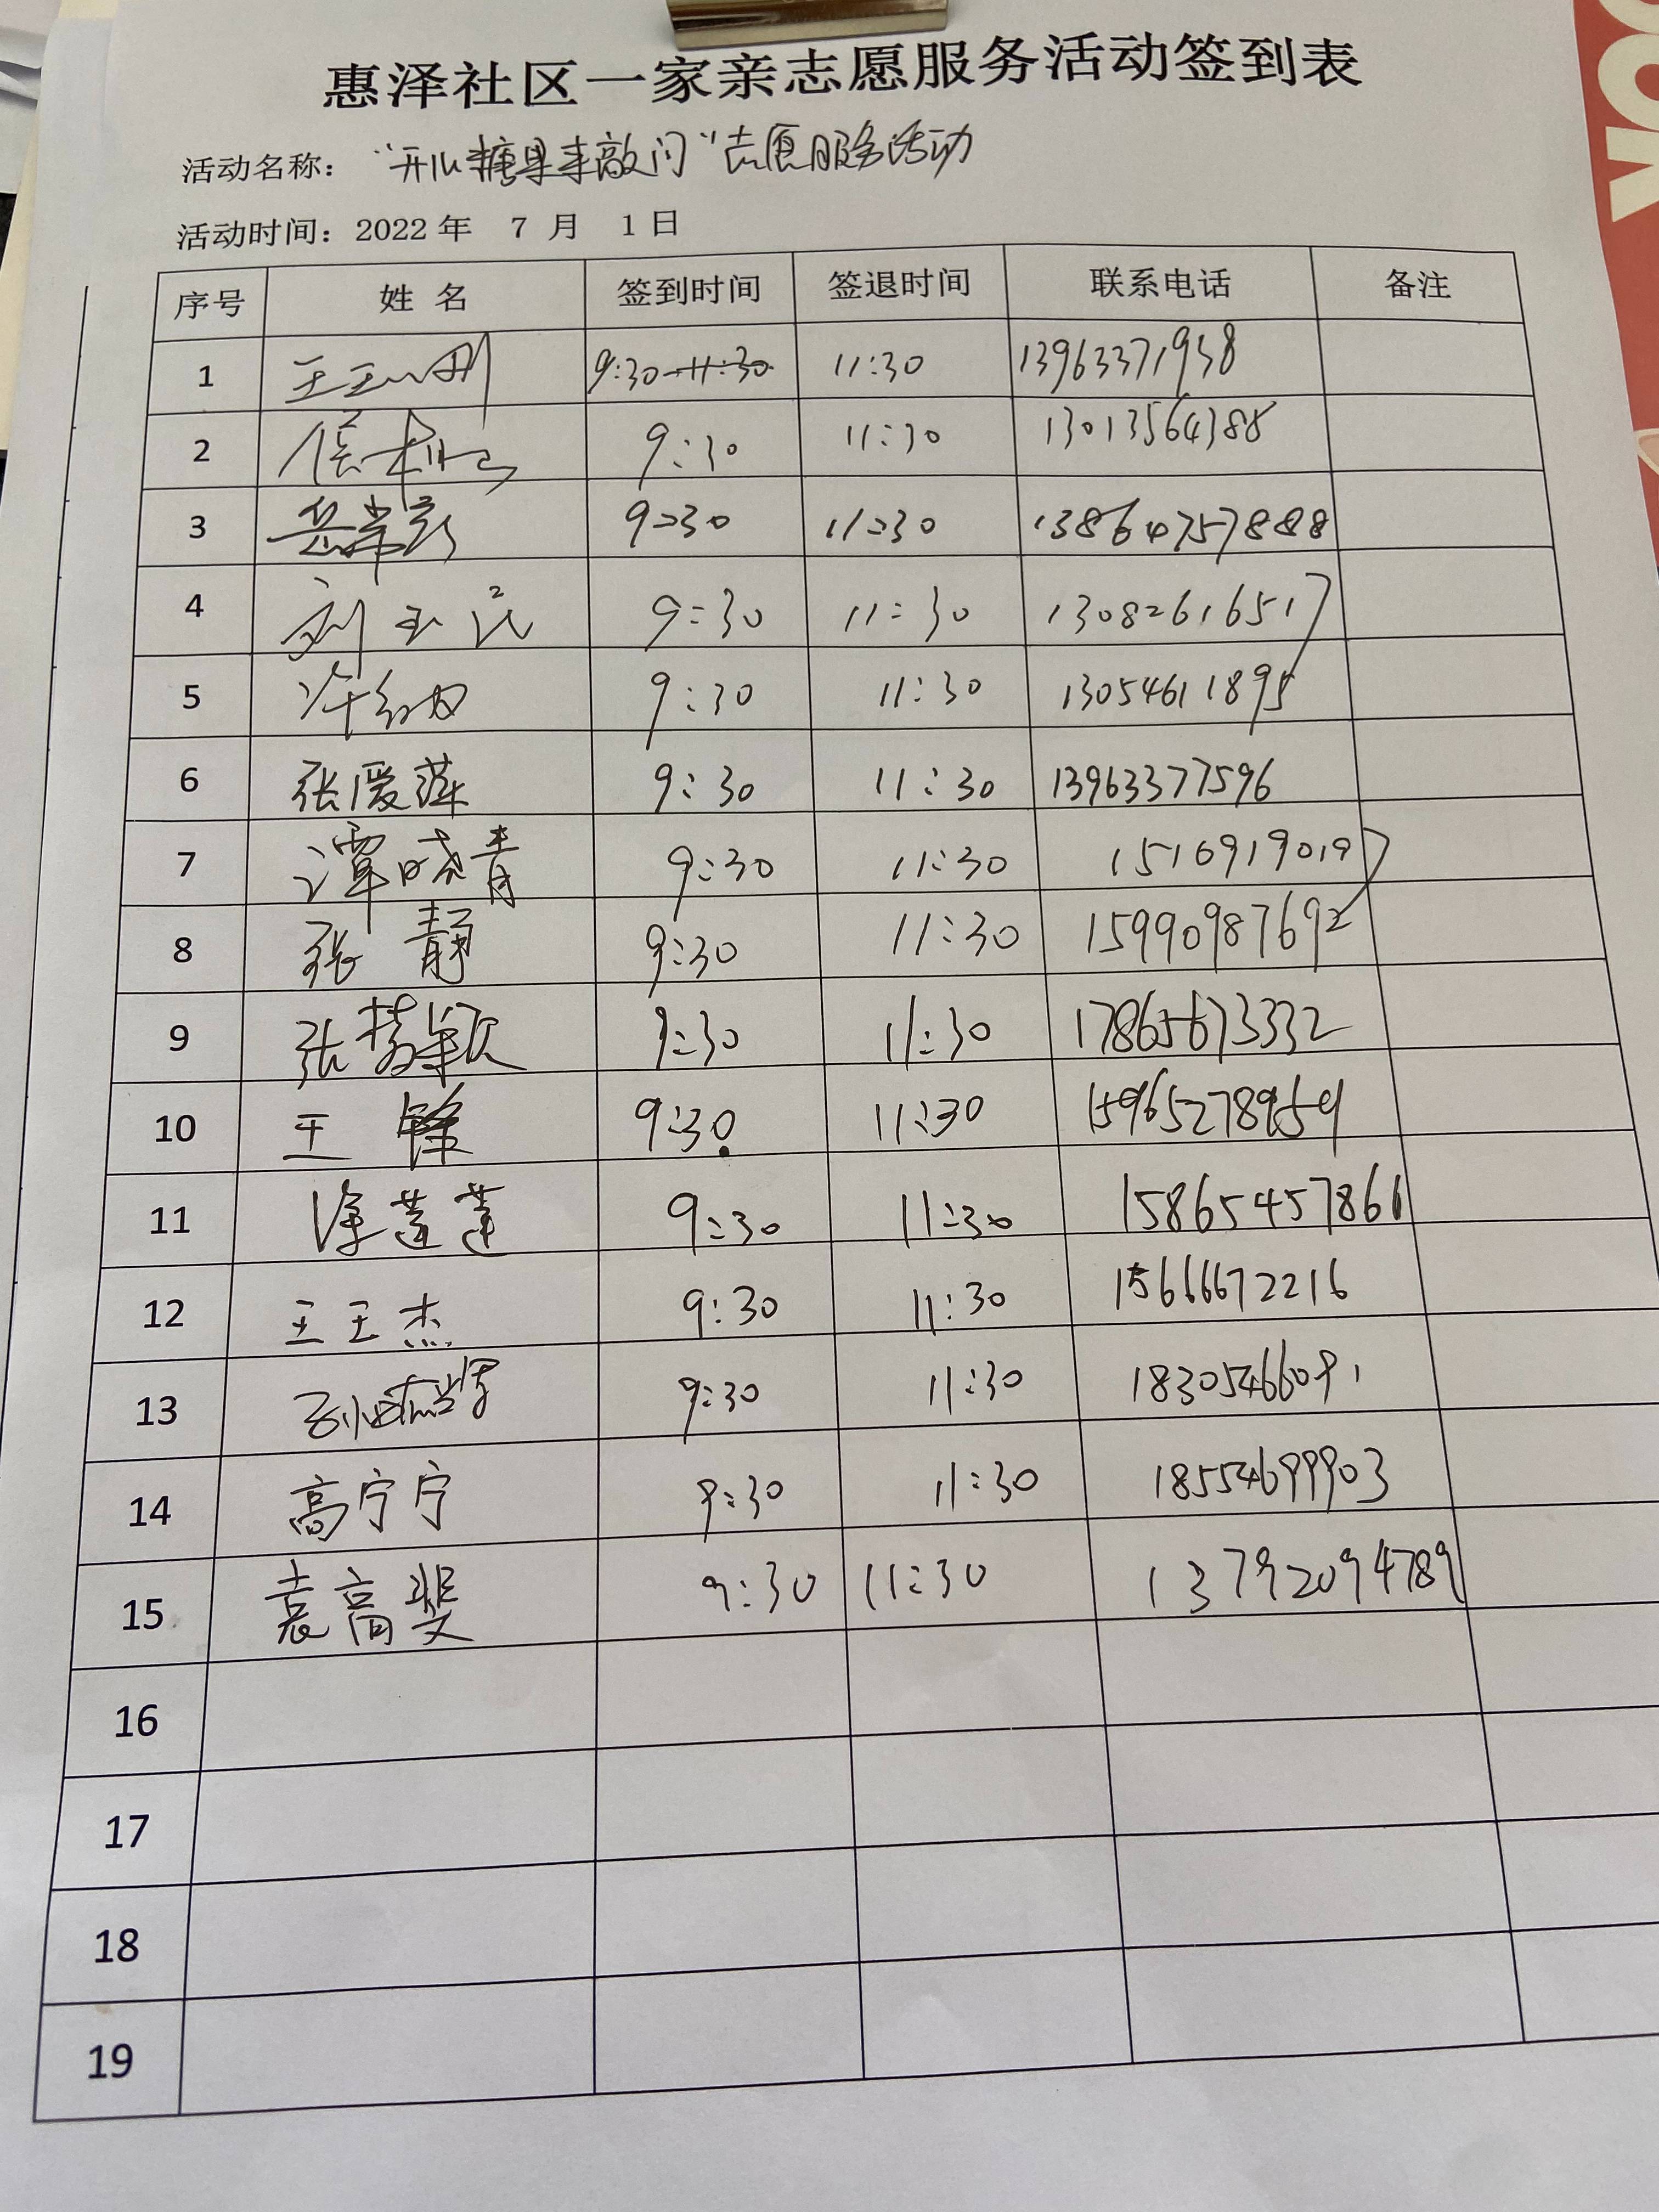 惠泽社区一家亲志愿服务活动签到表
活动名称：“开心糖果来敲门”志愿服务活动
活动时间：2022年 7 月 1日
序号 姓 名 签到时间 签退时间 联系电话 备注
1 9:30 11:30 13963371938
2 9:30 11:30 13013564388
3 9:30 11:30 13864757888
4 刘玉 9:30 11:30 13082616517
5 许 9:30 11:30 13054611895
6 张爱萍 9:30 11:30 13963377596
7 谭晓青 9:30 11:30 15169190197
8 张静 9:30 11:30 15990987692
9 张梦颖 9:30 11:30 17865673332
10 王锋 9:30 11:30 15965278959
11 徐莲莲 9:30 11:30 15865457861
12 王王杰 9:30 11:30 15666672216
13 孙 9:30 11:30 18305466091
14 高宁宁 9:30 11:30 18554699903
15 袁高斐 9:30 11:30 13792094789
16
17
18
19